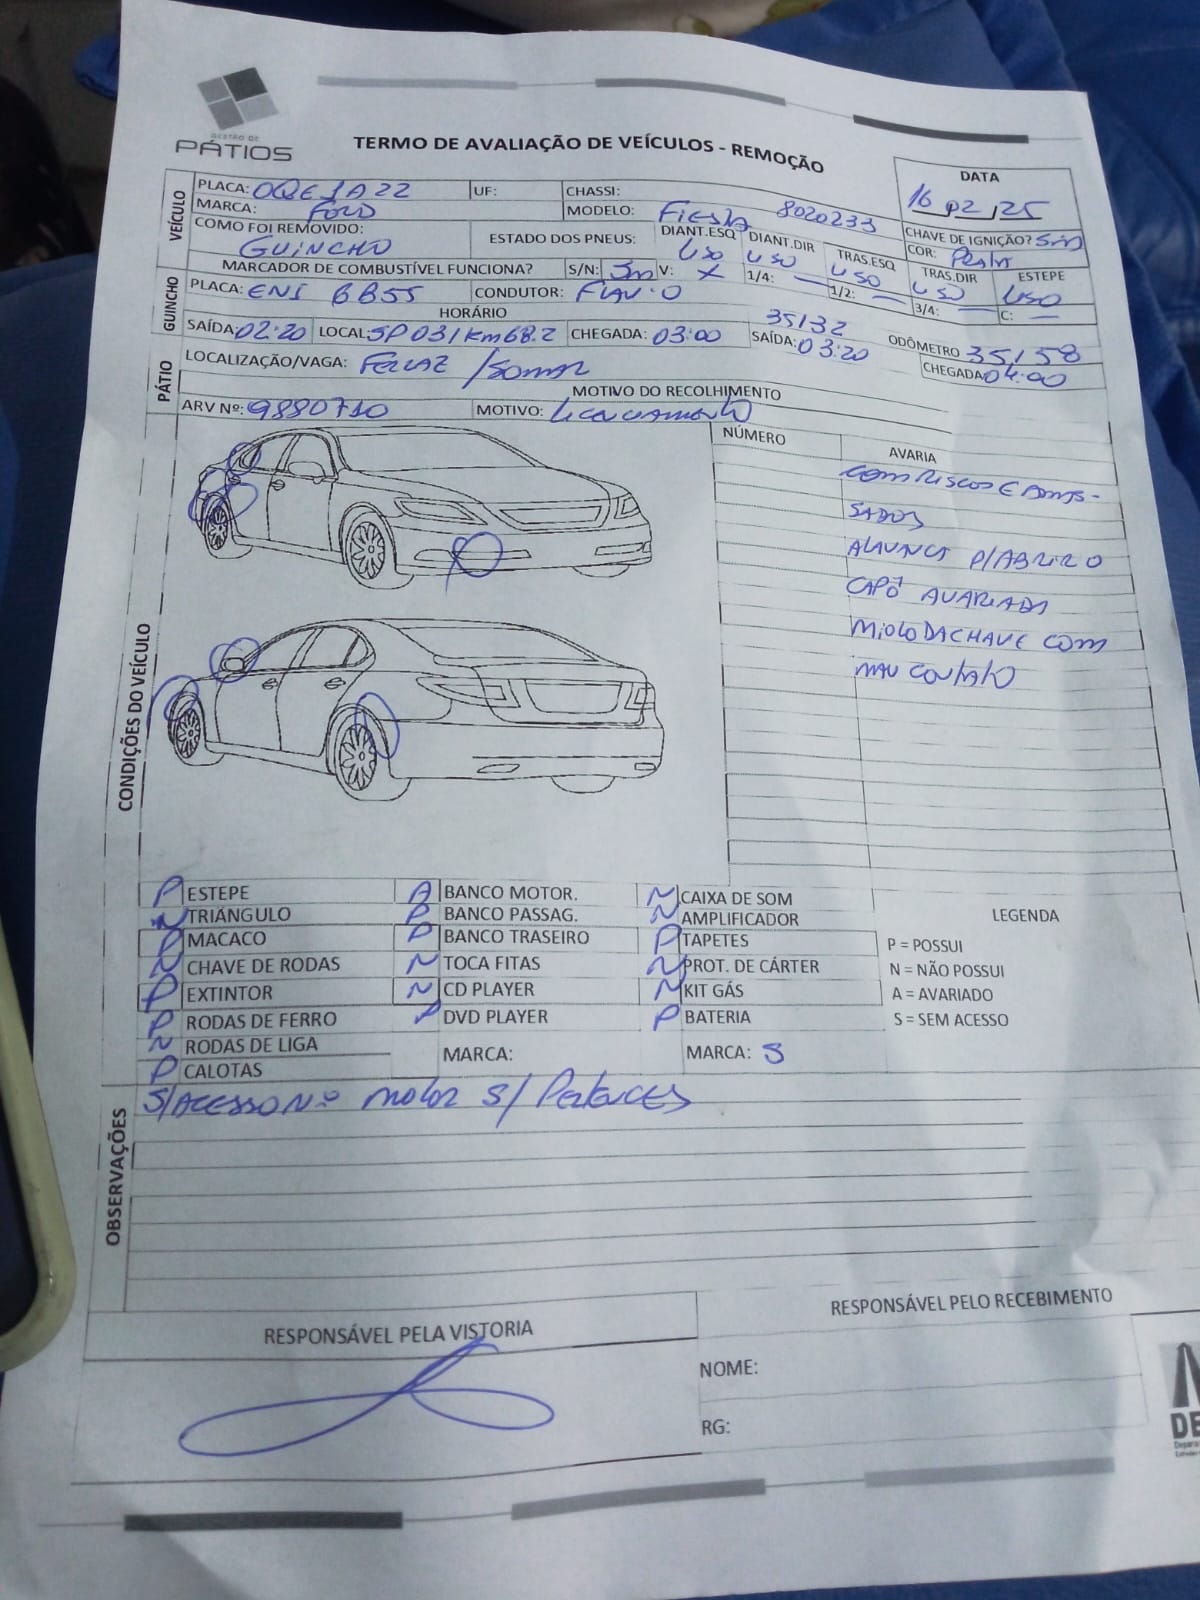 GESTÃO DE
PÁTIOS
TERMO DE AVALIAÇÃO DE VEÍCULOS - REMOÇÃO
DATA
16 02 25
VEÍCULO
PLACA: OQE1A22 UF: CHASSI:
MARCA: FORD MODELO: Fiesta 8020233
CHAVE DE IGNIÇÃO? Sim
COMO FOI REMOVIDO: GUINCHO
ESTADO DOS PNEUS: DIANT.ESQ USO DIANT.DIR USO TRAS.ESQ USO TRAS.DIR USO ESTEPE USO
COR:
MARCADOR DE COMBUSTÍVEL FUNCIONA? S/N: Sim V: X 1/4: — 1/2: — 3/4: — C: —
GUINCHO
PLACA: ENI BB55 CONDUTOR: FLAVIO
HORÁRIO
SAÍDA: 02:20 LOCAL: SP 031 Km 68.2 CHEGADA: 03:00 35132 SAÍDA: 03:20 ODÔMETRO 35158
CHEGADA 04:00
PÁTIO
LOCALIZAÇÃO/VAGA: FERRAZ /SOMAR
MOTIVO DO RECOLHIMENTO
ARV Nº: 9880710 MOTIVO: Licenciamento
CONDIÇÕES DO VEÍCULO
NÚMERO AVARIA
COM RISCOS E AMAS-
SADOS
ALAVNCA P/ABRIR O
CAPÔ AVARIADA
MIOLO DA CHAVE COM
MAU CONTATO
P ESTEPE A BANCO MOTOR. N CAIXA DE SOM
N TRIÂNGULO P BANCO PASSAG. N AMPLIFICADOR
P MACACO P BANCO TRASEIRO P TAPETES
N CHAVE DE RODAS N TOCA FITAS N PROT. DE CÁRTER
P EXTINTOR N CD PLAYER N KIT GÁS
P RODAS DE FERRO DVD PLAYER P BATERIA
N RODAS DE LIGA MARCA: MARCA: S
P CALOTAS
LEGENDA
P = POSSUI
N = NÃO POSSUI
A = AVARIADO
S = SEM ACESSO
OBSERVAÇÕES
S/ACESSO Nº MOTOR S/ PERTENCES
RESPONSÁVEL PELA VISTORIA
RESPONSÁVEL PELO RECEBIMENTO
NOME:
RG: